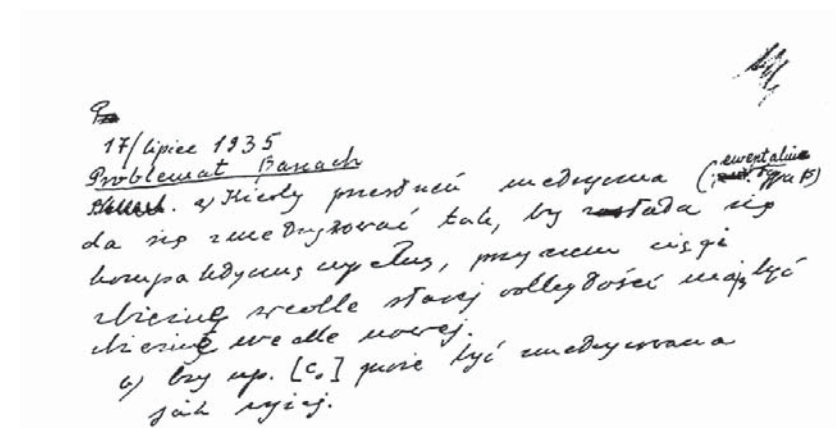 17/lipiec 1935
Problemat Banach
a) Kiedy przestrzeń metryczna (ewentualnie typu B)
da się zmetryzować tak, by stała się
kompaktyczną i zupełną, przy czem ciągi
zbieżne wedle starej odległości mają być
zbieżne wedle nowej.
b) Czy np. [c₀] może być zmetryzowana
jak wyżej.